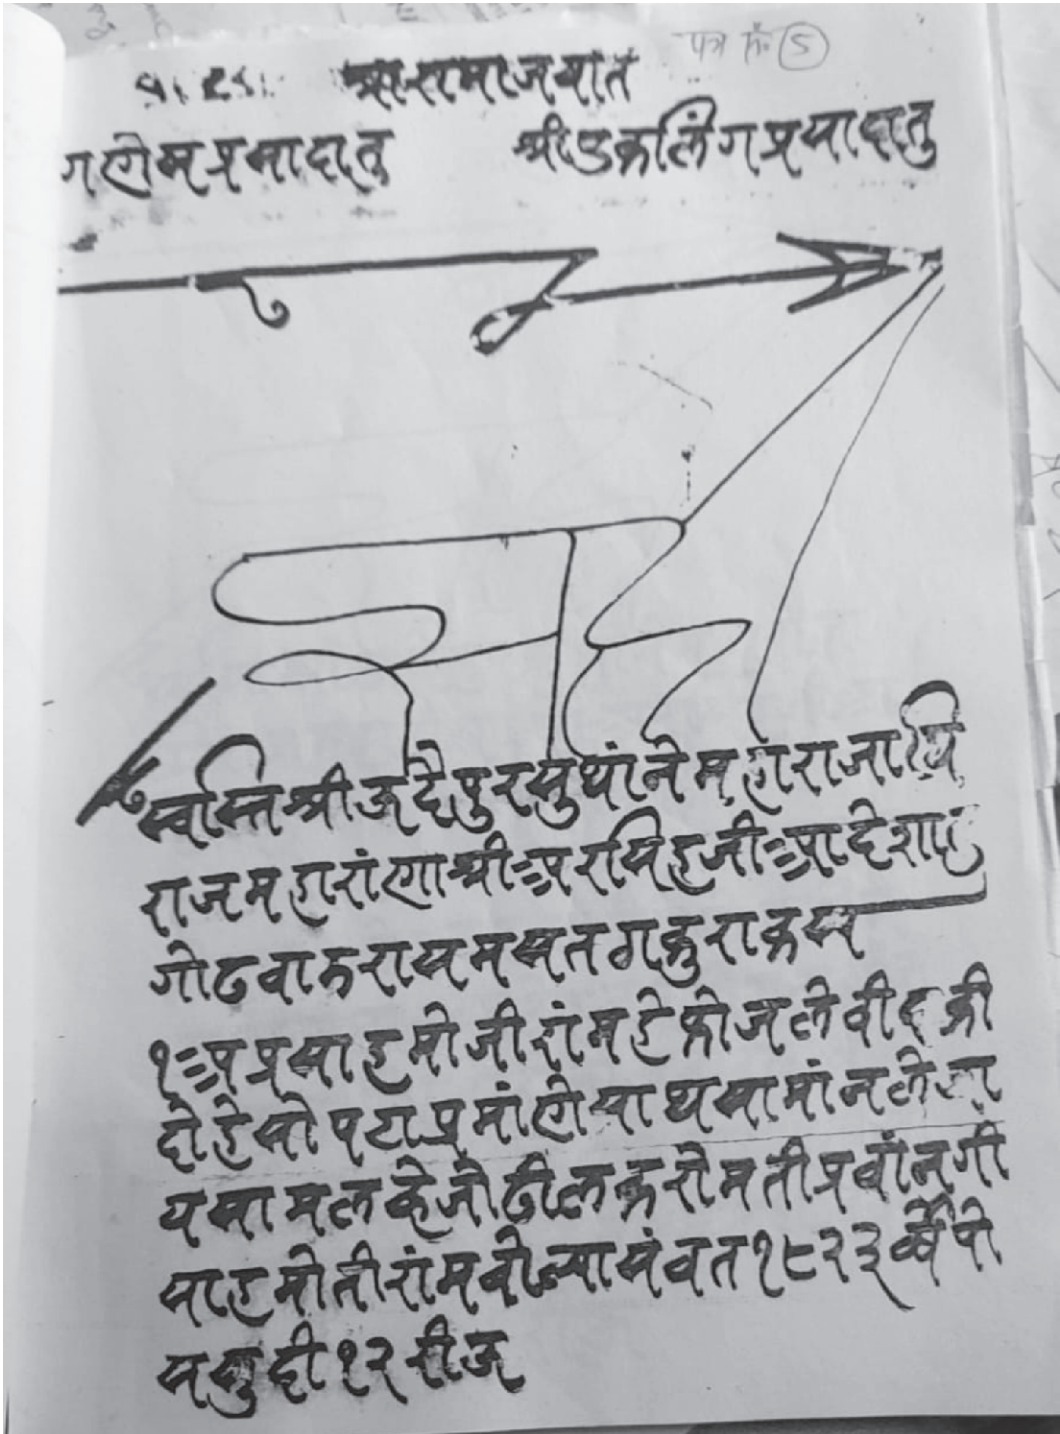 पत्र नं. 5
श्री रामोजयति
गणेसप्रसादातु श्रीएकलिंगप्रसादातु
सही
स्वस्ति श्री ऊदैपुर सुथांने महाराजाधि
राज महारांणा श्री अरसिंहजी आदेशातु
गोढवाड रा समसत ठाकुरा कस्य
१ अप्र साह मोजीरांम हे फोज ले वीदा की
दो हे सो पटा प्रमांणे साथ सामांन ले
य सामल व्हेजो ढील करो मती प्रवांनगी
साह मोतीरांम बोल्या संवत १८२३ वर्षे पो
स सुदी १२ रीऊ